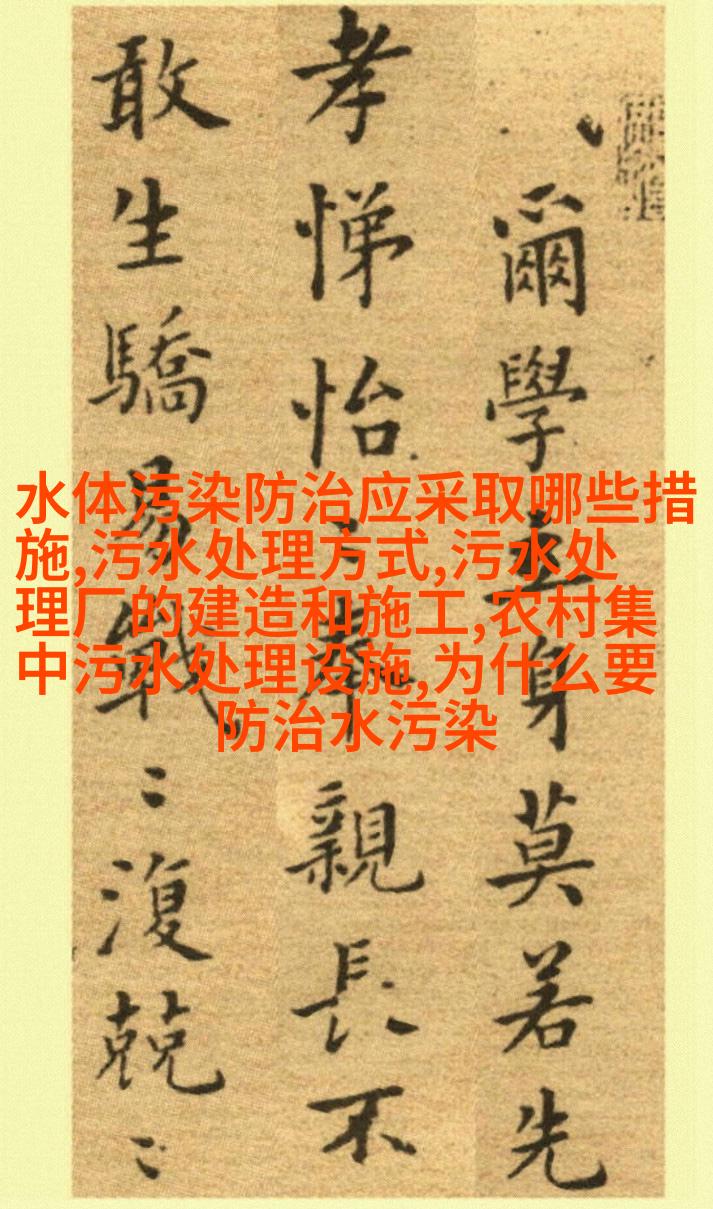 水体污染防治应采取哪些措
施,污水处理方式,污水处
理厂的建造和施工,农村集
中污水处理设施,为什么要
防治水污染
爾學立身莫若先
孝悌怡〻奉親長不
敢生驕易戰〻復兢〻